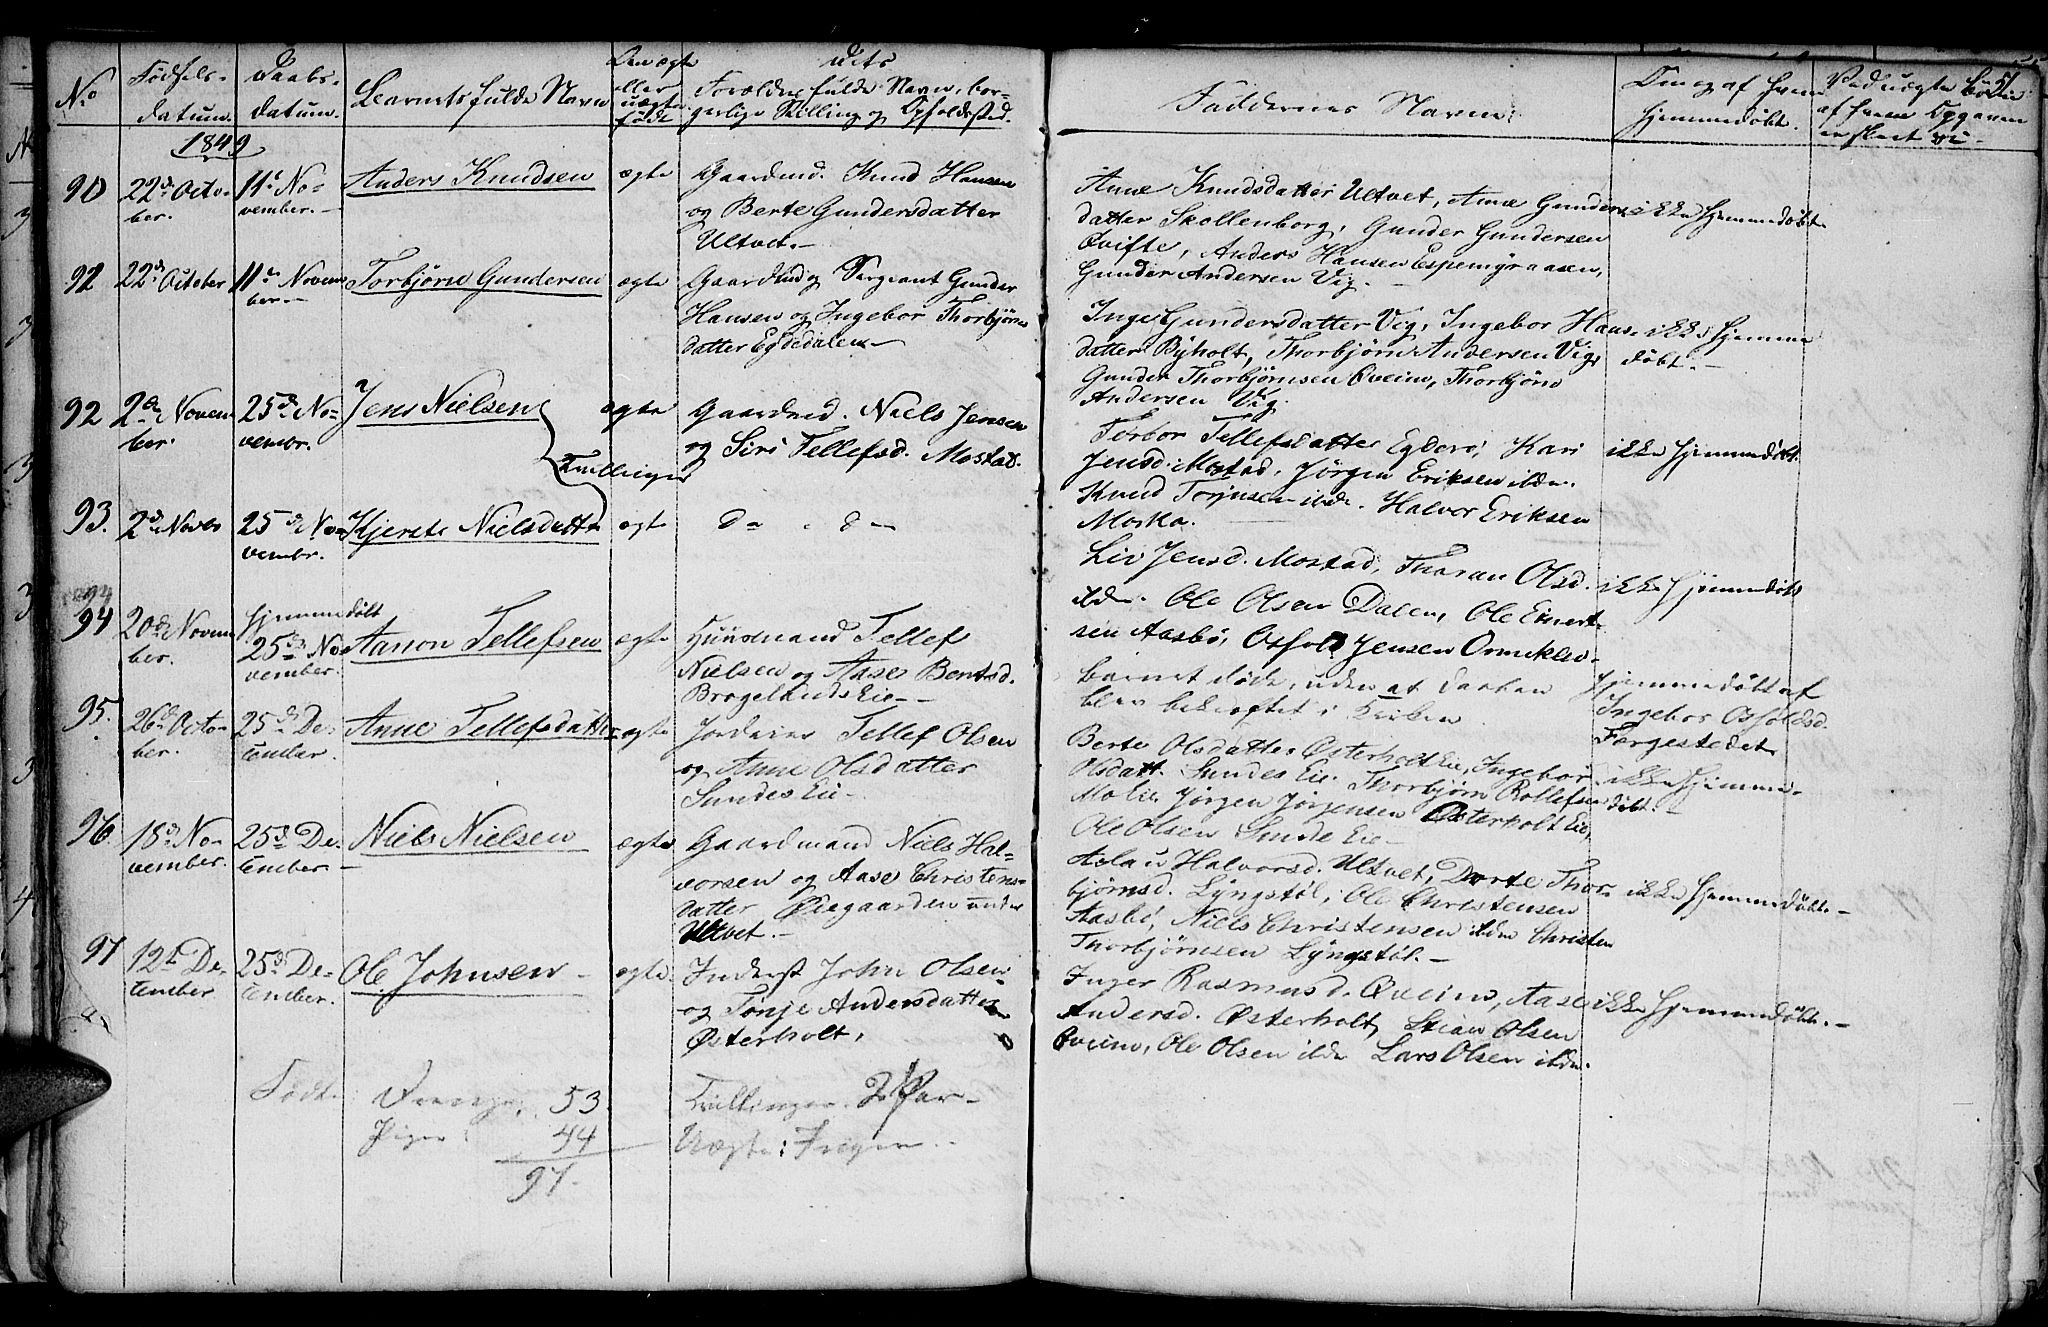 No
Fødsels-
datum.
Daabs-
datum.
Barnets fulde Navn
Om ægte
eller
uægte
født
dets
Forældres fulde Navn, bor-
gerlige Stilling og Opholdssted.
Faddernes Navne.
Om og af hvem
hjemmedøbt.
51
1849
90
22de Octo-
ber.
11te No-
vember.
Anders Knudsen
ægte
Gaardmd. Knud Hansen
og Berte Gundersdatter
Ultvet.
Anne Knudsdatter Ultvet, Anne Gunders-
datter Skollenborg, Gunder Gundersen
Qvifte, Anders Hansen Espemyraasen,
Gunder Andersen Vig.
ikke hjemmedøbt
92
22de October
11te Novem
ber.
Torbjørn Gundersen
ægte
Gaardmd og Sergeant Gunder
Hansen og Ingebor Thorbjørns
datter Egdedalen
Inge Gundersdatter Vig, Ingebor Hans-
datter Byholt, Thorbjørn Andersen Vig,
Gunder Thorbjørnsen Qveim, Thorbjørn
Andersen Vig.
ikke hjemme
døbt.
92
2de Novem
ber.
25de No-
vembr.
Jens Nielsen
Tvillinger
ægte
Gaardmd. Niels Jensen
og Siri Tellefsd. Mostad.
Torbor Tellefsdatter Egderø, Kari
Jensd. Mostad, Jørgen Eriksen ibdn.
Knud Torjusen ibdn. Halvor Eriksen
Moska.
ikke hjemmedøbt.
93.
2de Novbr
25de No-
vembr.
Kjerste Nielsdattr
ægte
d- d-
Liv Jensd. Mostad, Thoran Olsd.
ibdn. Ole Olsen Dalen, Ole Einert-
sen Aasbø, Osfold Jensen Ormeklev-
ikke hjemmedøbt
94
20de Novem
ber.
hjemmedøbt
25de No-
vember.
Aanon Tellefsen
ægte
Huusmand Tellef
Nielsen og Aase Bentsd.
Brogelands Eie
Barnet døde, uden at Daaben
blev bekræftet i Kirken
Hjemmedøbt af
Ingebor Osfoldsd.
Færgestedet
95.
26de Octo-
ber.
25de De-
cember.
Anne Tellefsdatter
ægte
Jordeier Tellef Olsen
og Anne Olsdatter
Sundes Eie
Berte Olsdatter Østerholt Eie, Ingebor
Olsdatt. Sundes Eie. Thorbjørn Rollefsen
Mo Eie. Jørgen Jørgensen Østerholt Eie,
Ole Olsen Sunde Eie
ikke hjemme-
døbt.
96.
18de No-
vember.
25de De-
cember.
Niels Nielsen
ægte
Gaardmand Niels Hal-
vorsen og Aase Christens-
datter Øiegaarden under
Ultvet.
Aslau Halvorsd. Ultvet, Dorte Thor-
bjørnsd. Lyngstøl, Ole Christensen
Aasbø, Niels Christensen ibdn Christen
Thorbjørnsen Lyngstøl.
ikke hjemmedøbt.
97
12te De-
cember
25de De-
cember.
Ole Johnsen
ægte
Inderst John Olsen
og Tonje Andersdatter
Østerholt,
Inger Rasmusd. Qveim, Aase
Andersd. Østerholt, Stian Olsen
Qveim, Ole Olsen ibdn Lars Olsen ibdn.
ikke hjemmedøbt.
Fødte: Drenge, 53
Piger: 44
97.
Tvillinger. 2 Par
Uægte: Ingen